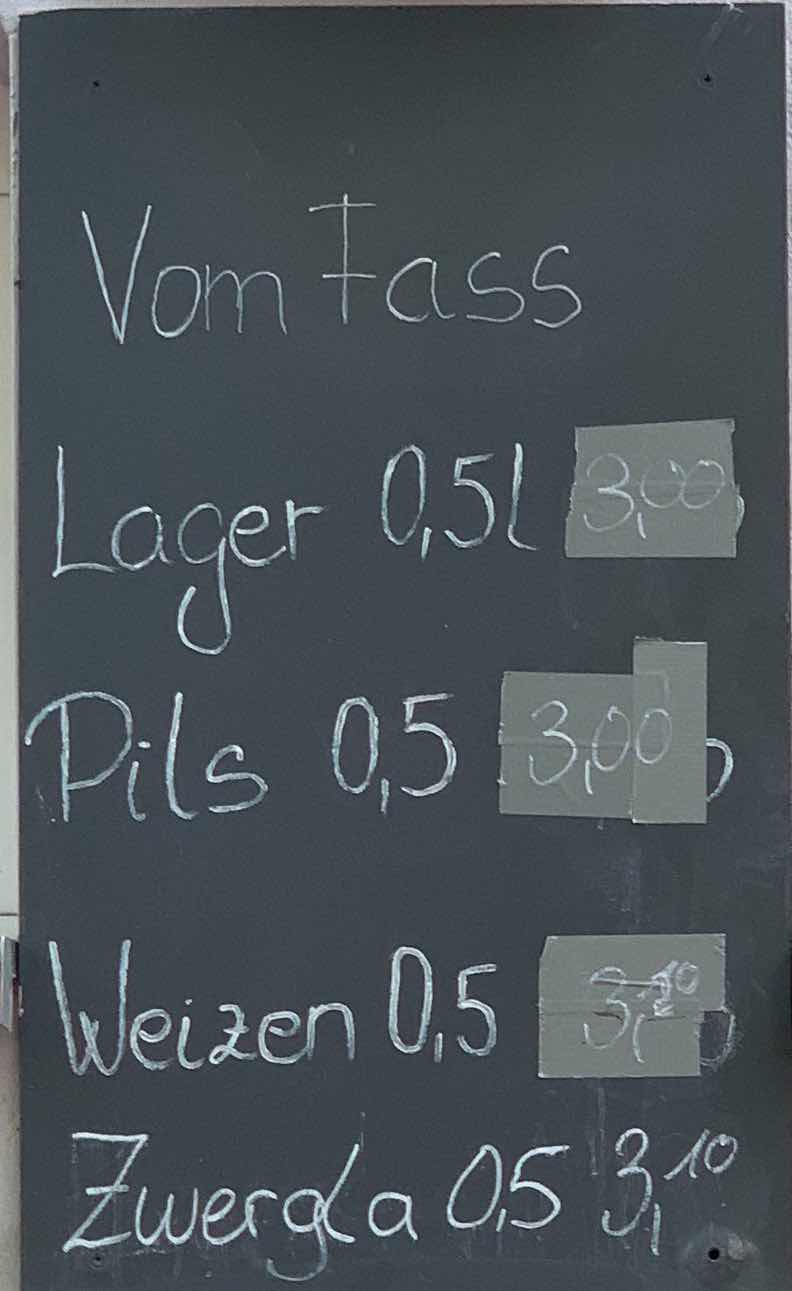 Vom Fass
Lager 0,5l 3,00
Pils 0,5 3,00
Weizen 0,5 3,10
Zwergla 0,5 3,10